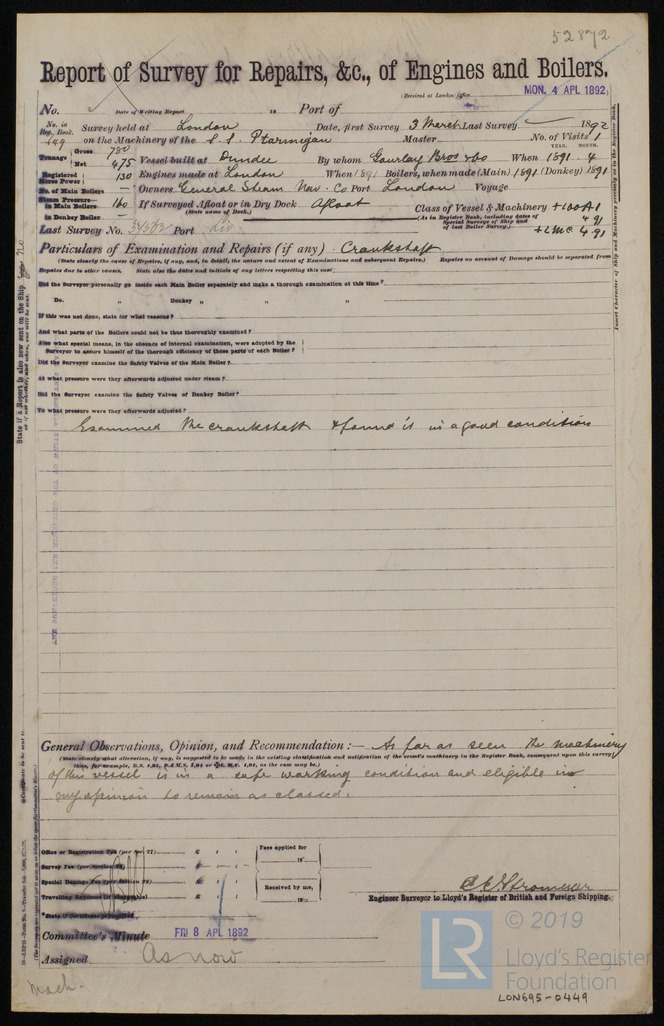 52872
Report of Survey for Repairs, &c., of Engines and Boilers.
(Received at London Office MON. 4 APL 1892
No. State of Writing Report is Port of
No. in Reg. Book. Survey held at London Date, first Survey 3 March Last Survey 1892
on the Machinery of the S.S. Ptarmigan Master No. of Visits 1
YEAR. MONTH.
Tonnage Gross 780
Net 475 Vessel built at Dundee By whom Gourlay Bros & Co When 1891. 4
Registered Horse Power 130 Engines made at London When 1891 Boilers, when made (Main) 1891 (Donkey) 1891
No. of Main Boilers — Owners General Steam Nav. Co Port London Voyage
Steam Pressure in Main Boilers 160 If Surveyed Afloat or in Dry Dock Afloat Class of Vessel & Machinery +100A1
(State name of Dock.) (As in Register Book, including dates of Special Surveys of Ship and of last Boiler Survey.) 4 91
in Donkey Boiler — +LMC 4.91
Last Survey No. Port Liv
Particulars of Examination and Repairs (if any) Crankshaft
(State clearly the cause of Repairs, if any, and, in detail, the nature and extent of Examinations and subsequent Repairs.) Repairs on account of Damage should be separated from
Repairs due to other causes. State also the dates and initials of any letters respecting this case
Did the Surveyor personally go inside each Main Boiler separately and make a thorough examination at this time?
Do. „ Donkey „ „ „
If this was not done, state for what reasons?
And what parts of the Boilers could not be thus thoroughly examined?
Also what special means, in the absence of internal examination, were adopted by the
Surveyor to assure himself of the thorough efficiency of those parts of each Boiler?
Did the Surveyor examine the Safety Valves of the Main Boiler?
At what pressure were they afterwards adjusted under steam?
Did the Surveyor examine the Safety Valves of Donkey Boiler?
To what pressure were they afterwards adjusted?
Examined the crankshaft & found it in a good condition
General Observations, Opinion, and Recommendation:— As far as seen the machinery
(State clearly what alteration, if any, is suggested to be made in the existing classification and notification of the vessel's machinery in the Register Book, consequent upon this survey
of this vessel is in a safe working condition and eligible in
my opinion to remain as classed.
Office or Registration Fee (per Sec. 27) £ : : Fees applied for
Survey Fee £ : : 18
Special Damage Fee £ : : Received by me,
Travelling Expenses £ : : 18
State if Certificate is required
Engineer Surveyor to Lloyd's Register of British and Foreign Shipping.
Committee's Minute FRI 8 APL 1892
Assigned As now
Mach.
State if a Report is also now sent on the Ship no
LR © 2019
Lloyd's Register
Foundation
LON695-0449